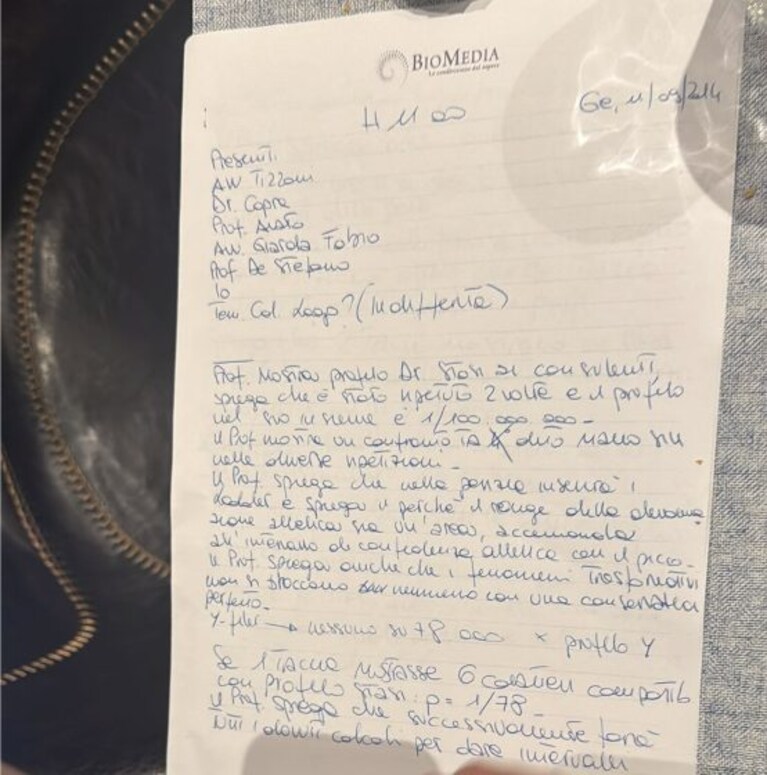 BIOMEDIA
Ge, 11/09/214
H 11 00
Presenti.
Avv Tizzoni
Dr. Capra
Prof.
Avv. Giarda Fabio
Prof De Stefano
Io
Ten. Col. (in differita)
Prof. Mostra profilo Dr. Stasi ai consulenti,
spiega che è stato ripetuto 2 volte e il profilo
nel suo insieme è 1/100.000.000.
Il Prof mostra un confronto tra dito mano sin
nelle diverse ripetizioni.
Il Prof. spiega che nella perizia inserirà i
ladder e spiega il perchè il range della
allelica sia un'area,
all'intervallo di confidenza allelica con il picco.
Il Prof. spiega anche che i fenomeni trasformativi
non si bloccano nemmeno con una conservazione
perfetta.
Y-filer → nessuno su 78 000 x profilo Y
Se 1 traccia mostrasse 6 caratteri compatib
con profilo Stasi: p = 1/78
Il Prof. spiega che successivamente farà
tutti i dovuti calcoli per dare intervalli